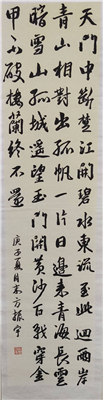 天門中斷楚江開碧水東流至此迴兩岸
青山相對出孤帆一片日邊來青海長雲
暗雪山孤城遥望玉門關黄沙百戰穿金
甲不破樓蘭終不還
庚子夏月